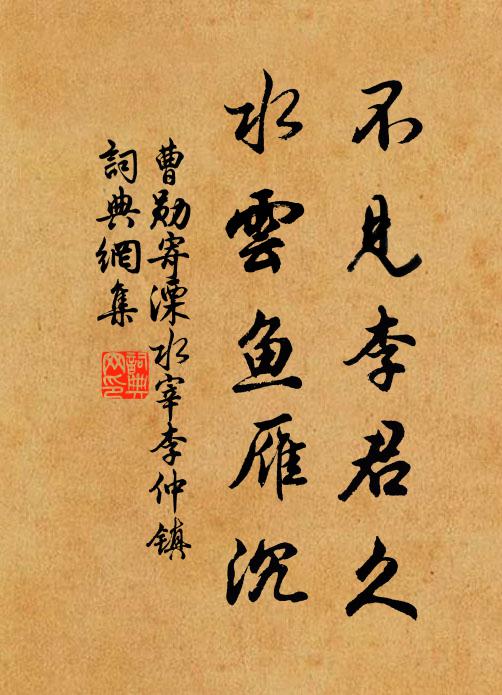 不見李君久
水雲鱼雁沉
曹勛寄溧水宰李仲鎮
詞典網集
詞典網印